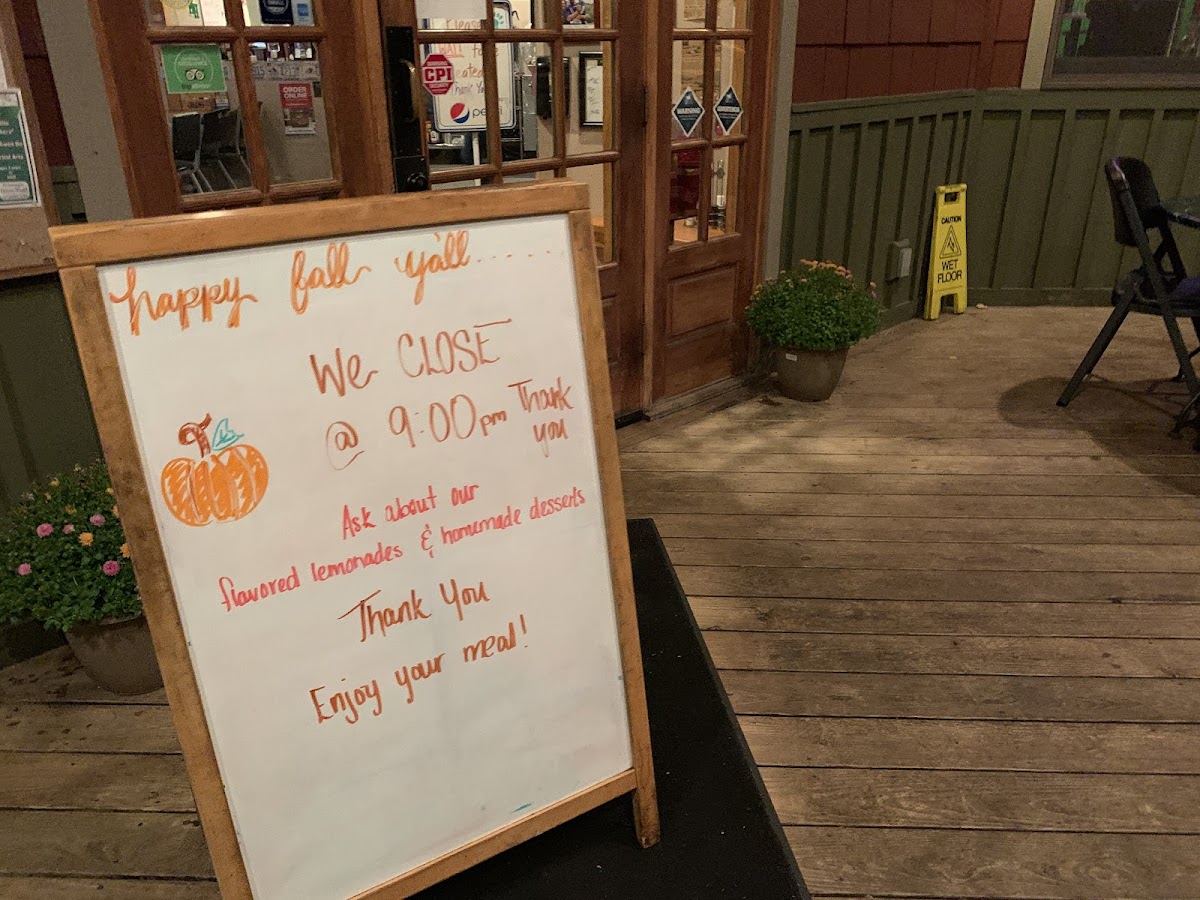 happy fall y'all......
We CLOSE
@ 9:00pm Thank
you
Ask about our
flavored lemonades & homemade desserts
Thank You
Enjoy your meal!
CPI
SECURITY
Please
WAIT
Thank You
ORDER
ONLINE
WARNING
CAUTION
WET
FLOOR